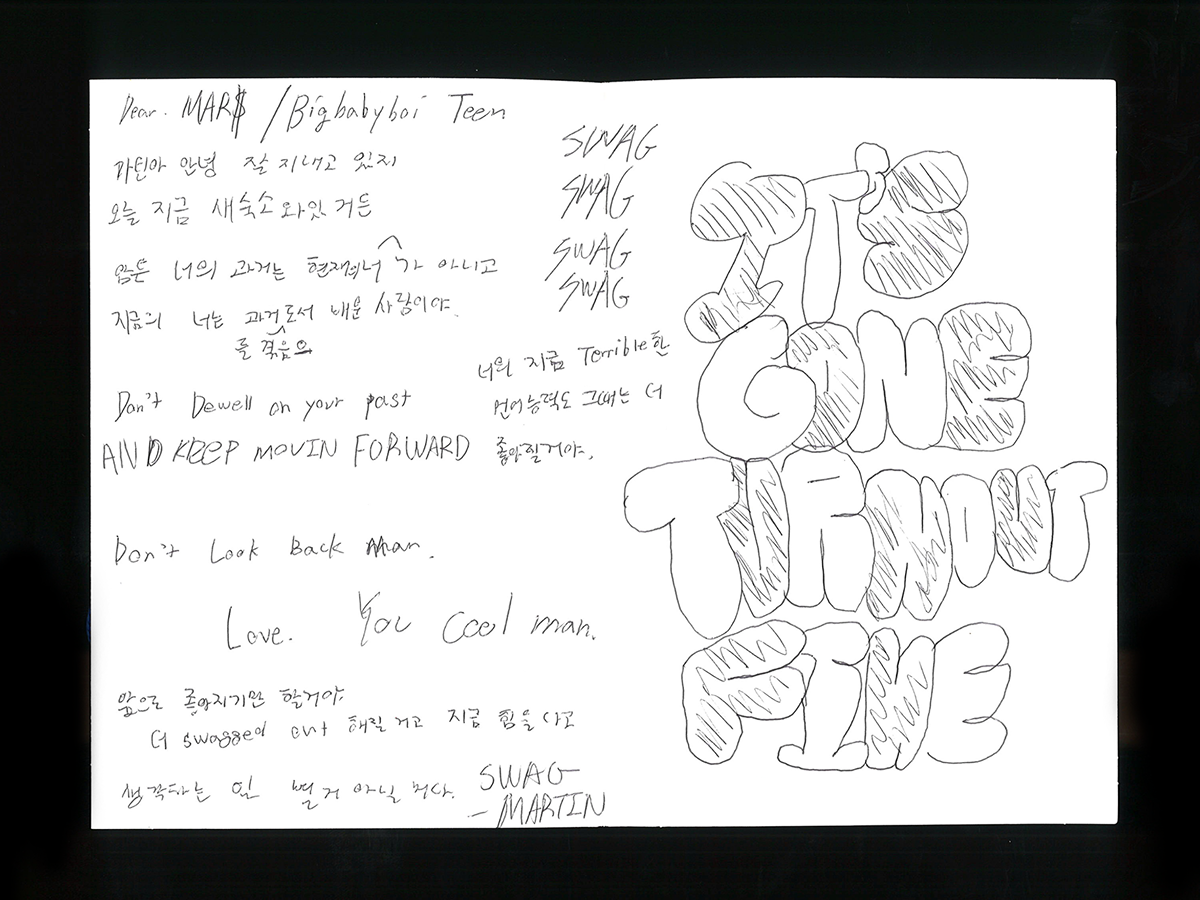 Dear. MAR$ / Bigbabyboi Teen
마틴아 안녕 잘 지내고 있지
오늘 지금 새숙소 와있 거든
암튼 너의 과거는 현재의너가 아니고
지금의 너는 과거도서 배운 사람이야.
를 겪음으
SWAG
SWAG
SWAG
SWAG
Don't Dewell on your past
AND KEEP MOVIN FORWARD
너의 지금 Terrible한
언어능력도 그때는 더
좋아질거야.
Don't Look Back Man.
Love. You Cool man.
앞으로 좋아지기만 할거야
더 swagged out 해질 거고 지금 힘들다고
생각하는 일 별거 아닐 거다.
SWAG
- MARTIN
IT'S
GONE
TURNOUT
FINE